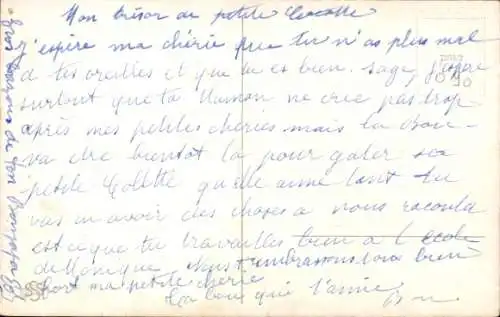 Mon trésor de petite Cocotte
J'espère ma chérie que tu n'as plus mal
a tes oreilles et que tu es bien sage, j'espère
surtout que ta Maman ne crie pas trop
après mes petites chéries mais la
va etre bientot la pour gater sa
petite Colette qu'elle aime tant tu
vas en avoir des choses a nous raconter
est ce que tu travailles bien a l'école
de Monique nous t'embrassons tous bien
fort ma petite chérie
Ta qui t'aime
Gros de ton